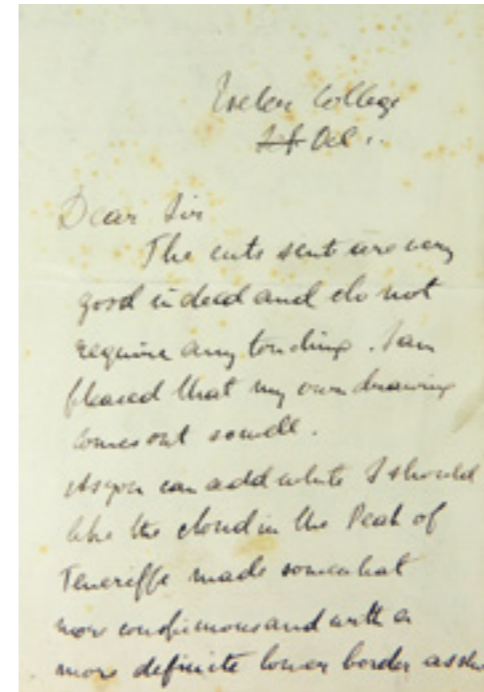 Exeter College
Oct.
Dear Sir
The cuts sent are very
good indeed and do not
require any touching. I am
pleased that my own drawing
comes out so well.
As you can add white I should
like the cloud in the Peak of
Teneriffe made somewhat
more conspicuous and with a
more definite lower border